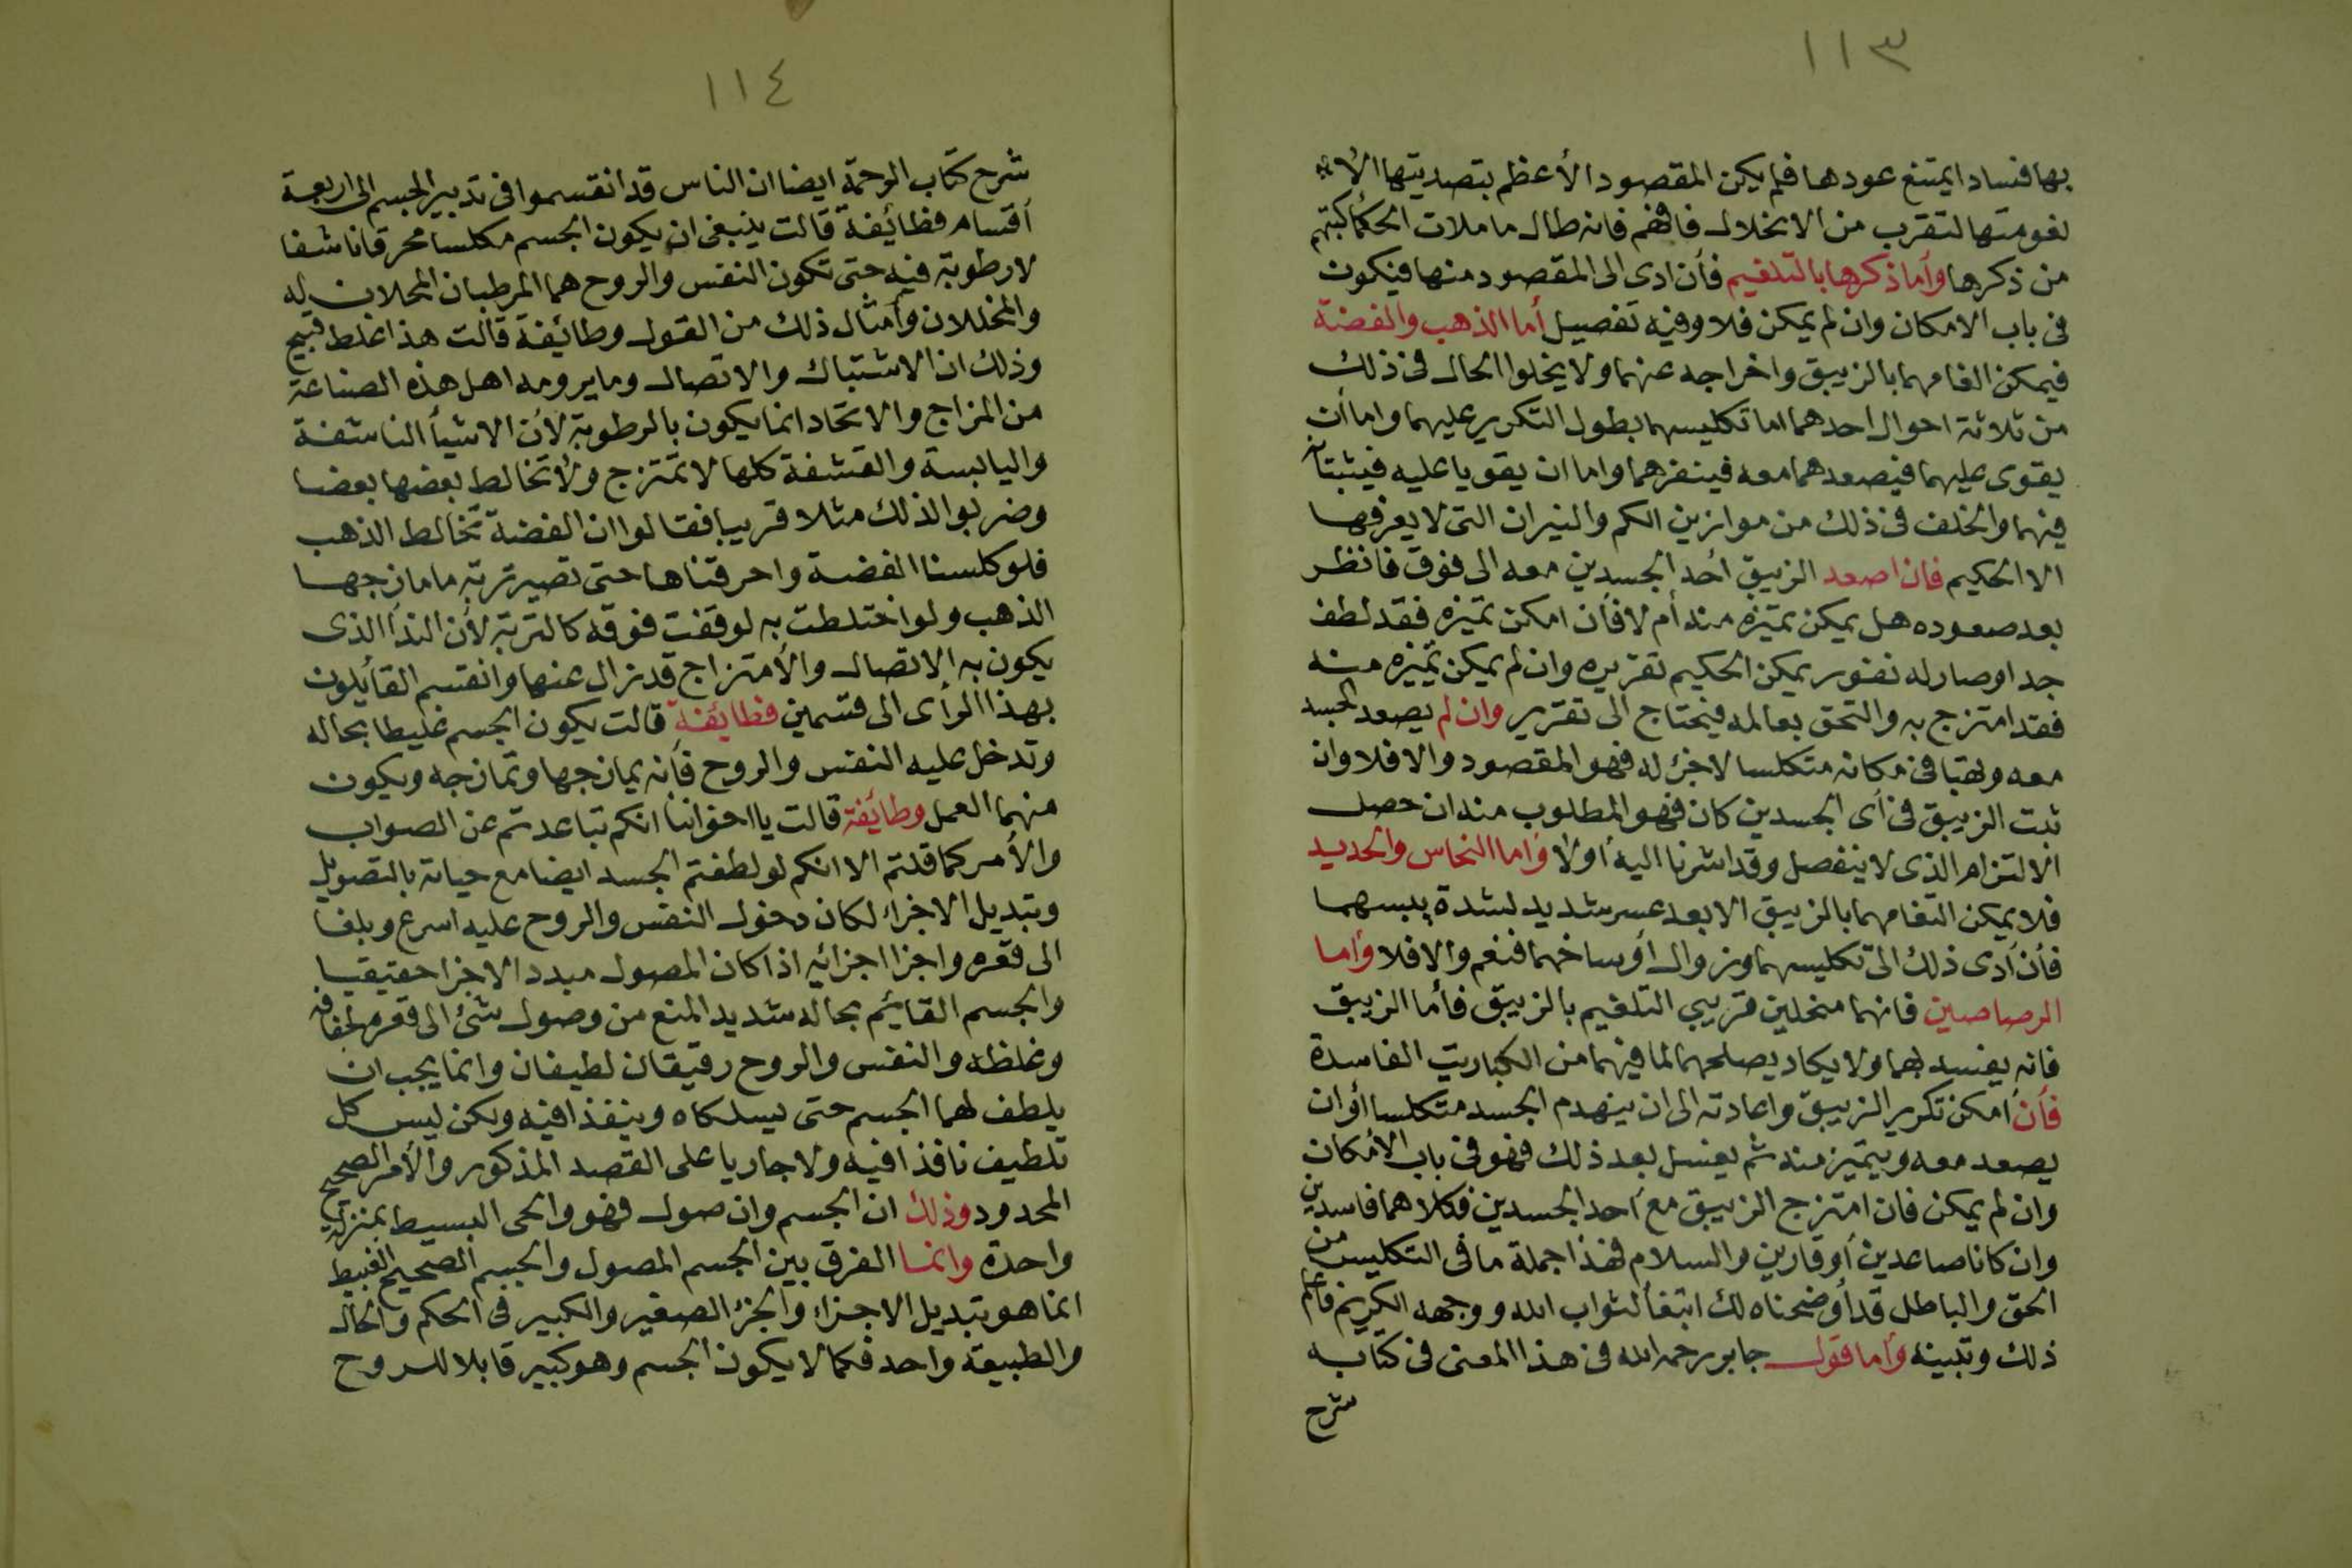 ١١٣
بها فسادا يمتنع عودها فلم يكن المقصود الأعظم بتصديتها الا
لغومتها لتقرب من الانحلال فافهم فانه طال ما ملات الحكما كتبهم
من ذكرها وأما ذكرها بالتلغيم فأن ادى الى المقصود منها فيكون
فى باب الامكان وان لم يمكن فلا وفيه تفصيل أما الذهب والفضة
فيمكن الغامهما بالزيبق واخراجه عنهما ولا يخلوا الحال فى ذلك
من ثلاثة احوال احدهما اما تكليسهما بطول التكرير عليهما واما أن
يقوى عليهما فيصعدهما معه فينفرهما واما ان يقويا عليه فيثبتانه
فيهما والخلف فى ذلك من موازين الكم والنيران التى لا يعرفها
الا الحكيم فان اصعد الزيبق أحد الجسدين معه الى فوق فانظر
بعد صعوده هل يمكن تميزه منه أم لا فأن امكن تميزه فقد لطف
جدا وصار له نفور يمكن الحكيم تقريره وان لم يمكن تميزه منه
فقد امتزج به والتحق بعالمه فيحتاج الى تقرير وان لم يصعد الجسد
معه وبقيا فى مكانه متكلسا لاجزء له فهو المقصود والا فلا وان
ثبت الزيبق فى أى الجسدين كان فهو المطلوب منه ان حصل
الالتزام الذى لا ينفصل وقد اشرنا اليه أولا وأما النحاس والحديد
فلا يمكن التغامهما بالزيبق الا بعد عسر شديد لشدة يبسهما
فأن أدى ذلك الى تكليسهما وزوال أوساخهما فنعم والا فلا وأما
الرصاصين فانهما منحلين قريبي التلغيم بالزيبق فأما الزيبق
فانه يفسد بهما ولا يكاد يصلحهما لما فيهما من الكباريت الفاسدة
فأن امكن تكرير الزيبق واعادته الى ان ينهدم الجسد متكلسا أو ان
يصعد معه ويتميز منه ثم يغسل بعد ذلك فهو فى باب الأمكان
وان لم يمكن فان امتزج الزيبق مع احد الجسدين فكلاهما فاسدين
وان كانا صاعدين أو قارين والسلام فهذا جملة ما فى التكليس من
الحق والباطل قد أوضحناه لك ابتغأ لثواب الله ووجهه الكريم فأعلم
ذلك وتبينه وأما قول جابر رحمه الله فى هذا المعنى فى كتابه
شرح
١١٤
شرح كتاب الرحمة ايضا ان الناس قد انقسموا فى تدبير الجسم الى اربعة
أقسام فطائفة قالت ينبغى ان يكون الجسم مكلسا محرقا ناشفا
لا رطوبة فيه حتى تكون النفس والروح هما المرطبان المحلان له
والمخللان وأمثال ذلك من القول وطائفة قالت هذا غلط قبيح
وذلك ان الاشتباك والاتصال وما يرومه اهل هذه الصناعة
من المزاج والاتحاد انما يكون بالرطوبة لأن الاشيأ الناشفة
واليابسة والقشفة كلها لا تمتزج ولا تخالط بعضها بعضا
وضربوا لذلك مثلا قريبا فقالوا ان الفضة تخالط الذهب
فلو كلسنا الفضة واحرقناها حتى تصير تربة ما مازجها
الذهب ولو اختلطت به لوقفت فوقه كالتربة لأن الندأ الذى
يكون به الاتصال والأمتزاج قد زال عنها وانقسم القأيلون
بهذا الرأى الى قسمين فطائفة قالت يكون الجسم غليطا بحاله
وتدخل عليه النفس والروح فأنه يمازجها وتمازجه ويكون
منهما العمل وطائفة قالت يا اخواننا انكم تباعدتم عن الصواب
والأمر كما قلتم الا انكم لو لطفتم الجسد ايضا مع حياته بالتصويل
وتبديل الاجزاء لكان دخول النفس والروح عليه اسرع وبلغا
الى قعره واجزا اجزائه اذا كان المصول مبدد الاجزا حقيقيا
والجسم القائم بحاله شديد المنع من وصول شئ الى قعره لجفافه
وغلظه والنفس والروح رقيقان لطيفان وانما يجب ان
يلطف لهما الجسم حتى يسلكاه وينفذا فيه ولكن ليس كل
تلطيف نافذا فيه ولا جاريا على القصد المذكور والأمر الصحيح
المحدود وذلك ان الجسم وان صول فهو والحى البسيط بمنزلة
واحدة وانما الفرق بين الجسم المصول والجسم الصحيح الغبيط
انما هو بتبديل الاجزاء والجزء الصغير والكبير فى الحكم والحال
والطبيعة واحد فكما لا يكون الجسم وهو كبير قابلا للروح